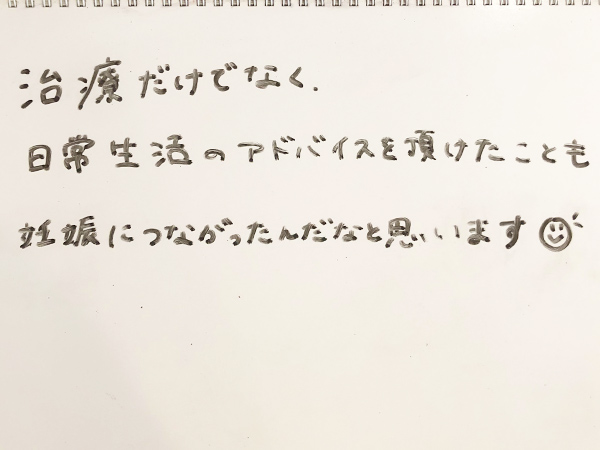 治療だけでなく、
日常生活のアドバイスを頂けたことも
妊娠につながったんだなと思います